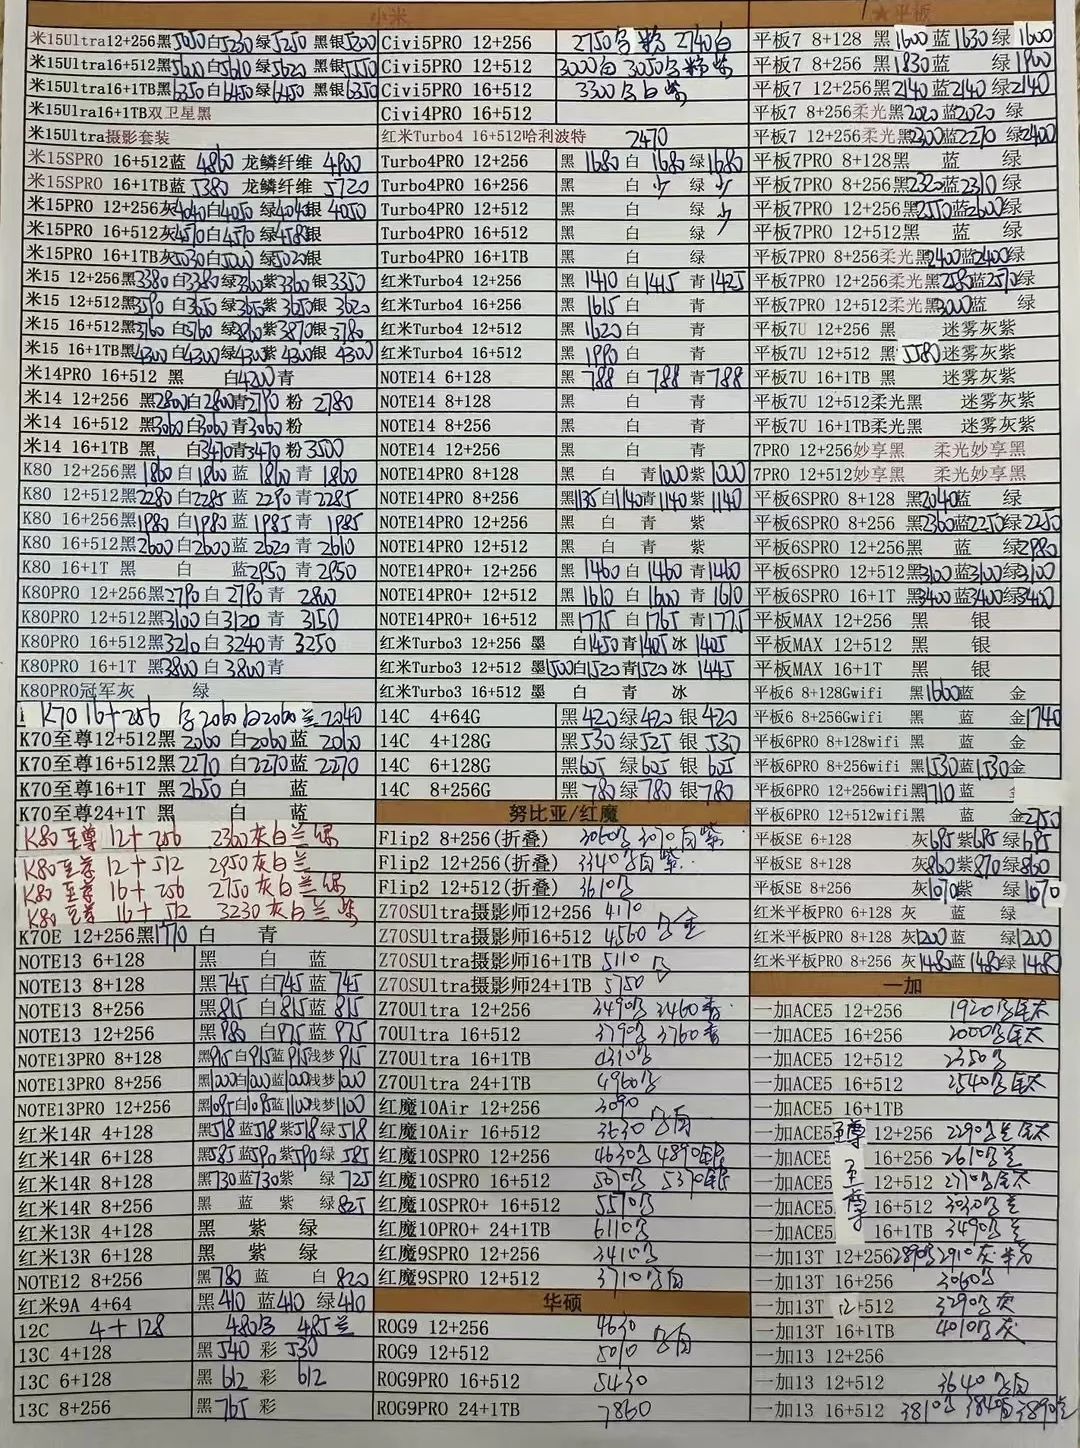 小米
米15Ultra12+256黑5050白5230绿5250 黑银5200
米15Ultra16+512黑5600白5610绿5620 黑银5550
米15Ultra16+1TB黑6350白6450绿6450 黑银6350
米15Ulra16+1TB双卫星黑
米15Ultra摄影套装
米15SPRO 16+512蓝 4860 龙鳞纤维 4900
米15SPRO 16+1TB蓝 5380 龙鳞纤维 5720
米15PRO 12+256灰4040白4050 绿4040银 4050
米15PRO 16+512灰4570白4570 绿4580银
米15PRO 16+1TB灰5030白5000 绿5020银
米15 12+256黑3380白3380绿3360紫3360银3350
米15 12+512黑3590 白3650绿3650紫3650银3620
米15 16+512黑3760 白3760 绿3860紫3870银3780
米15 16+1TB黑4300 白4300绿4300紫 4300银 4300
米14PRO 16+512 黑 白4200青
米14 12+256 黑2800白2800青2790 粉 2780
米14 16+512 黑3060白3060青3060粉
米14 16+1TB 黑 白3470青3470 粉 3500
K80 12+256黑 1860 白 1860 蓝 1860 青 1860
K80 12+512黑2280 白2285 蓝 2290 青2285
K80 16+256黑1980 白1980 蓝 1985 青 1985
K80 16+512黑2600 白2600 蓝 2620 青 2610
K80 16+1T 黑 白 蓝2950 青 2950
K80PRO 12+256黑2790 白 2790 青 2800
K80PRO 12+512黑3100 白 3120 青 3150
K80PRO 16+512黑3210 白 3240青 3250
K80PRO 16+1T 黑3800 白 3800青
K80PRO冠军灰 绿
K70 16+256 2060 白2060 兰 2040
K70至尊12+512黑 2060 白2060 蓝 2060
K70至尊16+512黑2270 白2270蓝 2270
K70至尊16+1T 黑 2650 白 蓝
K70至尊24+1T 黑 白 蓝
K80至尊 12+256 2300 灰白兰绿
K80至尊 12+512 2950 灰白兰
K80至尊 16+256 2750 灰白兰绿
K80至尊 16+512 3230 灰白兰
K70E 12+256黑1770 白 青
NOTE13 6+128 黑 白 蓝
NOTE13 8+128 黑745 白745 蓝 745
NOTE13 8+256 黑815 白815蓝 815
NOTE13 12+256 黑980 白975 蓝 975
NOTE13PRO 8+128 黑915白915蓝915浅梦915
NOTE13PRO 8+256 黑1000白1000蓝1000浅梦1000
NOTE13PRO 12+256 黑1095白1095蓝1100浅梦1100
红米14R 4+128 黑518 蓝518 紫518 绿518
红米14R 6+128 黑585蓝590紫590绿 585
红米14R 8+128 黑730蓝730紫 绿 725
红米14R 8+256 黑 蓝 紫 绿825
红米13R 4+128 黑 紫 绿
红米13R 6+128 黑 紫 绿
NOTE12 8+256 黑780 蓝 白 820
红米9A 4+64 黑410 蓝410 绿410
12C 4+128 480 485兰
13C 4+128 黑 540 彩 530
13C 6+128 黑 612 彩 612
13C 8+256 黑765 彩
Civi5PRO 12+256 2750 粉 2740白
Civi5PRO 12+512 3000白 3050 粉紫
Civi5PRO 16+512 3300 白紫
Civi4PRO 16+512
红米Turbo4 16+512哈利波特 2470
Turbo4PRO 12+256 黑 1680 白 1680 绿1680
Turbo4PRO 16+256 黑 白 少 绿 少
Turbo4PRO 12+512 黑 白 绿 少
Turbo4PRO 16+512 黑 白 绿
Turbo4PRO 16+1TB 黑 白 绿
红米Turbo4 12+256 黑 1410 白1415 青1425
红米Turbo4 16+256 黑 1615 白 青
红米Turbo4 12+512 黑 1620 白 青
红米Turbo4 16+512 黑 1990 白 青
NOTE14 6+128 黑 788 白 788 青788
NOTE14 8+128 黑 白 青
NOTE14 8+256 黑 白 青
NOTE14 12+256 黑 白 青
NOTE14PRO 8+128 黑 白 青1000紫1000
NOTE14PRO 8+256 黑1135白1140青1140紫1140
NOTE14PRO 12+256 黑 白 青 紫
NOTE14PRO 12+512 黑 白 青 紫
NOTE14PRO+ 12+256 黑 1460 白 1460 青 1460
NOTE14PRO+ 12+512 黑 1610 白 1600 青 1610
NOTE14PRO+ 16+512 黑1775 白 1765 青 1775
红米Turbo3 12+256 墨 白1450青1405冰 1405
红米Turbo3 12+512 墨1500白1520青1520冰 1445
红米Turbo3 16+512 墨 白 青 冰
14C 4+64G 黑420绿420 银420
14C 4+128G 黑530绿525 银 530
14C 6+128G 黑605 绿605 银 605
14C 8+256G 黑780 绿780 银780
努比亚/红魔
Flip2 8+256(折叠) 3060 3070白紫
Flip2 12+256(折叠) 3340 白紫
Flip2 12+512(折叠) 3610
Z70SUltra摄影师12+256 4170
Z70SUltra摄影师16+512 4560 金
Z70SUltra摄影师16+1TB 5110
Z70SUltra摄影师24+1TB 5750
Z70Ultra 12+256 3490 3460青
70Ultra 16+512 3790 3760青
Z70Ultra 16+1TB 4310
Z70Ultra 24+1TB 4960
红魔10Air 12+256 3090
红魔10Air 16+512 3630 白
红魔10SPRO 12+256 4630 4890银
红魔10SPRO 16+512 5070 5370银
红魔10SPRO+ 16+512 5570
红魔10PRO+ 24+1TB 6110
红魔9SPRO 12+256 3410
红魔9SPRO 12+512 3710 白
华硕
ROG9 12+256 4630
ROG9 12+512 5090 白
ROG9PRO 16+512 5430
ROG9PRO 24+1TB 7860
★平板
平板7 8+128 黑 1600 蓝 1630 绿 1600
平板7 8+256 黑 1830蓝 绿 1900
平板7 12+256黑2140蓝2140 绿2140
平板7 8+256柔光黑2020蓝2020 绿
平板7 12+256柔光黑2300蓝2270 绿2400
平板7PRO 8+128黑 蓝 绿
平板7PRO 8+256黑2320蓝2310 绿
平板7PRO 12+256黑2550蓝2600绿
平板7PRO 12+512黑 蓝 绿
平板7PRO 8+256柔光黑2400蓝2400绿
平板7PRO 12+256柔光黑2580蓝2570绿
平板7PRO 12+512柔光黑3000蓝 绿
平板7U 12+256 黑 迷雾灰紫
平板7U 12+512 黑 5580迷雾灰紫
平板7U 16+1TB 黑 迷雾灰紫
平板7U 12+512柔光黑 迷雾灰紫
平板7U 16+1TB柔光黑 迷雾灰紫
7PRO 12+256妙享黑 柔光妙享黑
7PRO 12+512妙享黑 柔光妙享黑
平板6SPRO 8+128 黑2040蓝 绿
平板6SPRO 8+256 黑2360蓝2250绿2250
平板6SPRO 12+256黑 蓝 绿2980
平板6SPRO 12+512黑3100蓝3100绿3100
平板6SPRO 16+1T 黑3400蓝3400绿3400
平板MAX 12+256 黑 银
平板MAX 12+512 黑 银
平板MAX 16+1T 黑 银
平板6 8+128Gwifi 黑1660蓝 金
平板6 8+256Gwifi 黑 蓝 金1740
平板6PRO 8+128wifi 黑 蓝 金
平板6PRO 8+256wifi 黑1530蓝1530金
平板6PRO 12+256wifi黑1710 蓝
平板6PRO 12+512wifi黑 蓝 金2250
平板SE 6+128 灰685紫685绿685
平板SE 8+128 灰860紫870绿860
平板SE 8+256 灰1070紫 绿 1070
红米平板PRO 6+128 灰 蓝 绿
红米平板PRO 8+128 灰1200蓝 绿1200
红米平板PRO 8+256 灰1480蓝 1480绿1480
一加
一加ACE5 12+256 1920 钛
一加ACE5 16+256 2000 钛
一加ACE5 12+512 2350
一加ACE5 16+512 2540 钛
一加ACE5 16+1TB
一加ACE5至尊 12+256 2290 兰钛
一加ACE5 16+256 2610 兰
一加ACE5 至 12+512 2710 钛
一加ACE5 尊 16+512 3030 兰
一加ACE5 16+1TB 3490 兰
一加13T 12+256 2890 2910灰 粉
一加13T 16+256 3060
一加13T 12+512 3290 灰
一加13T 16+1TB 4010 灰
一加13 12+256
一加13 12+512 3640 白
一加13 16+512 3810 3840白3890兰